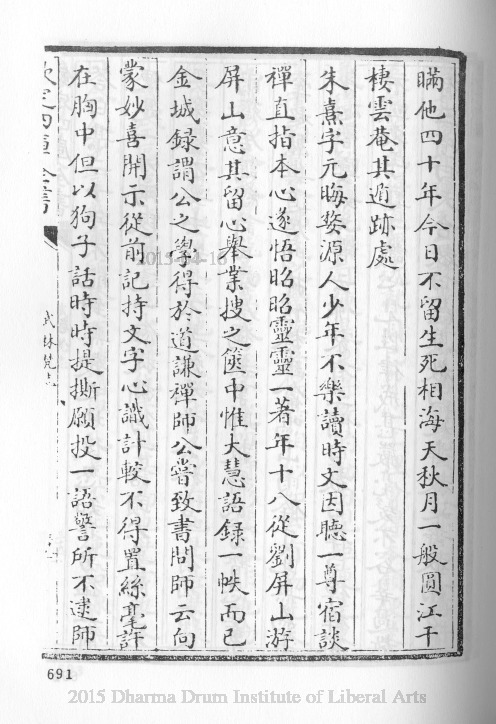 瞞他四十年今日不留生死相海天秋月一般圓江干
棲雲菴其遁跡處
朱熹字元晦婺源人少年不樂讀時文因聽一尊宿談
禪直指本心遂悟昭昭靈靈一著年十八從劉屏山游
屏山意其留心舉業搜之篋中惟大慧語錄一帙而已
金城録謂公之學得於道謙禪師公嘗致書問師云向
蒙妙喜開示從前記持文字心識計較不得置絲毫許
在胸中但以狗子話時時提撕願投一語警所不逮師
欽定四庫全書
武林梵志
691
2015 Dharma Drum Institute of Liberal Arts